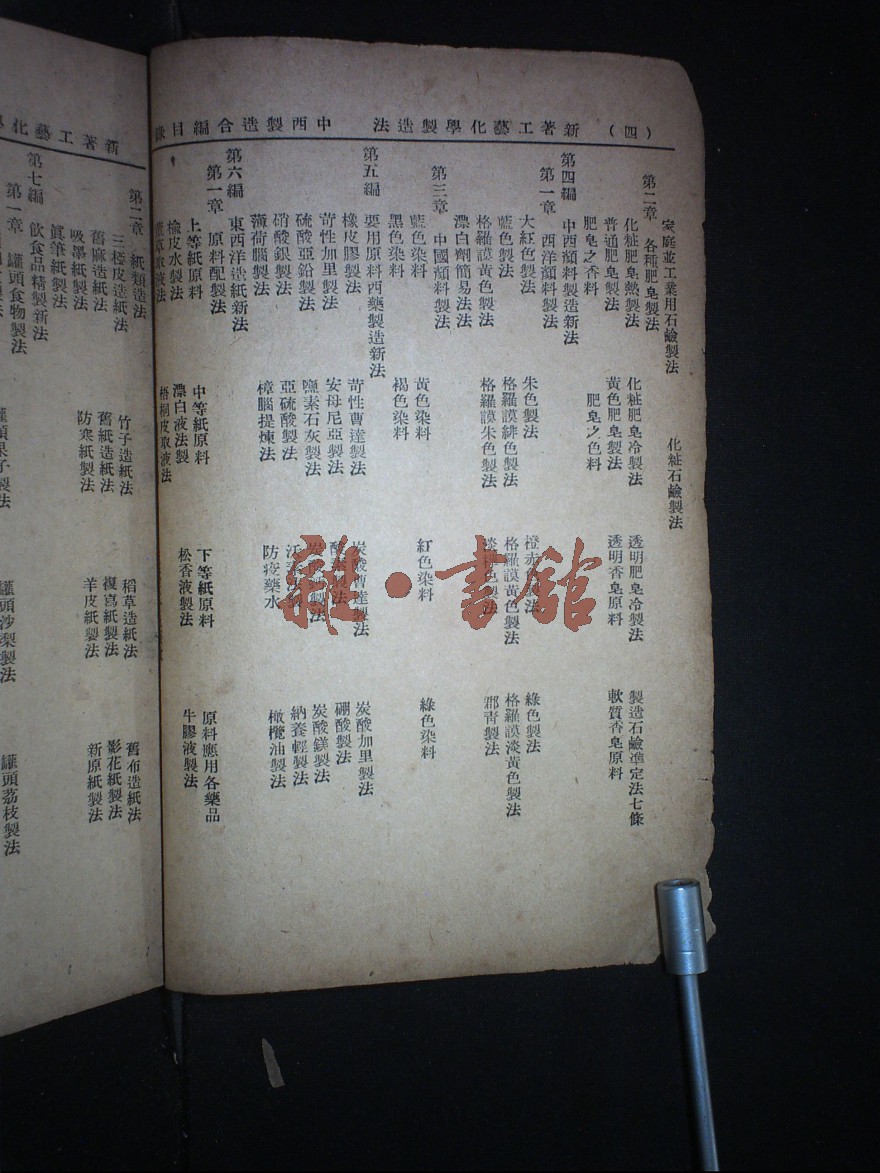 (四) 新著工藝化學製造法 中西製造合編目錄
家庭並工業用石鹼製法 化粧石鹼製法
第二章 各種肥皂製法
化粧肥皂熱製法 化粧肥皂冷製法 透明肥皂冷製法 製造石鹼準定法七條
普通肥皂製法 黃色肥皂製法 透明香皂原料 軟質香皂原料
肥皂之香料 肥皂之色料
第四編 中西顏料製造新法
第一章 西洋顏料製法
大紅色製法 朱色製法 橙赤色製法 綠色製法
藍色製法 格羅謨緋色製法 格羅謨黃色製法 格羅謨淡黃色製法
格羅謨黃色製法 格羅謨朱色製法 郡青製法
漂白劑簡易法法
第三章 中國顏料製法
藍色染料 黃色染料 紅色染料 綠色染料
黑色染料 褐色染料
第五編 要用原料西藥製造新法
橡皮膠製法 苛性曹達製法 炭酸曹達製法 炭酸加里製法
苛性加里製法 安母尼亞製法 硼酸製法
硫酸亞鉛製法 鹽素石灰製法 炭酸鎂製法
硝酸銀製法 亞硫酸製法 納養輕製法
薄荷腦製法 樟腦提煉法 防疫藥水 橄欖油製法
第六編 東西洋造紙新法
第一章 原料配製法
上等紙原料 中等紙原料 下等紙原料 原料應用各藥品
檢皮水製法 漂白液法製 松香液製法 牛膠液製法
梧桐皮取液法
雜·書館
新著工藝化學
第二章 紙類造法
三椏皮造紙法 竹子造紙法 稻草造紙法 舊布造紙法
舊麻造紙法 舊紙造紙法 複寫紙製法 影花紙製法
吸墨紙製法 防寒紙製法 羊皮紙製法 新原紙製法
眞筆紙製法
第七編 飲食品精製新法
第一章 罐頭食物製法
罐頭果子製法 罐頭沙梨製法 罐頭荔枝製法